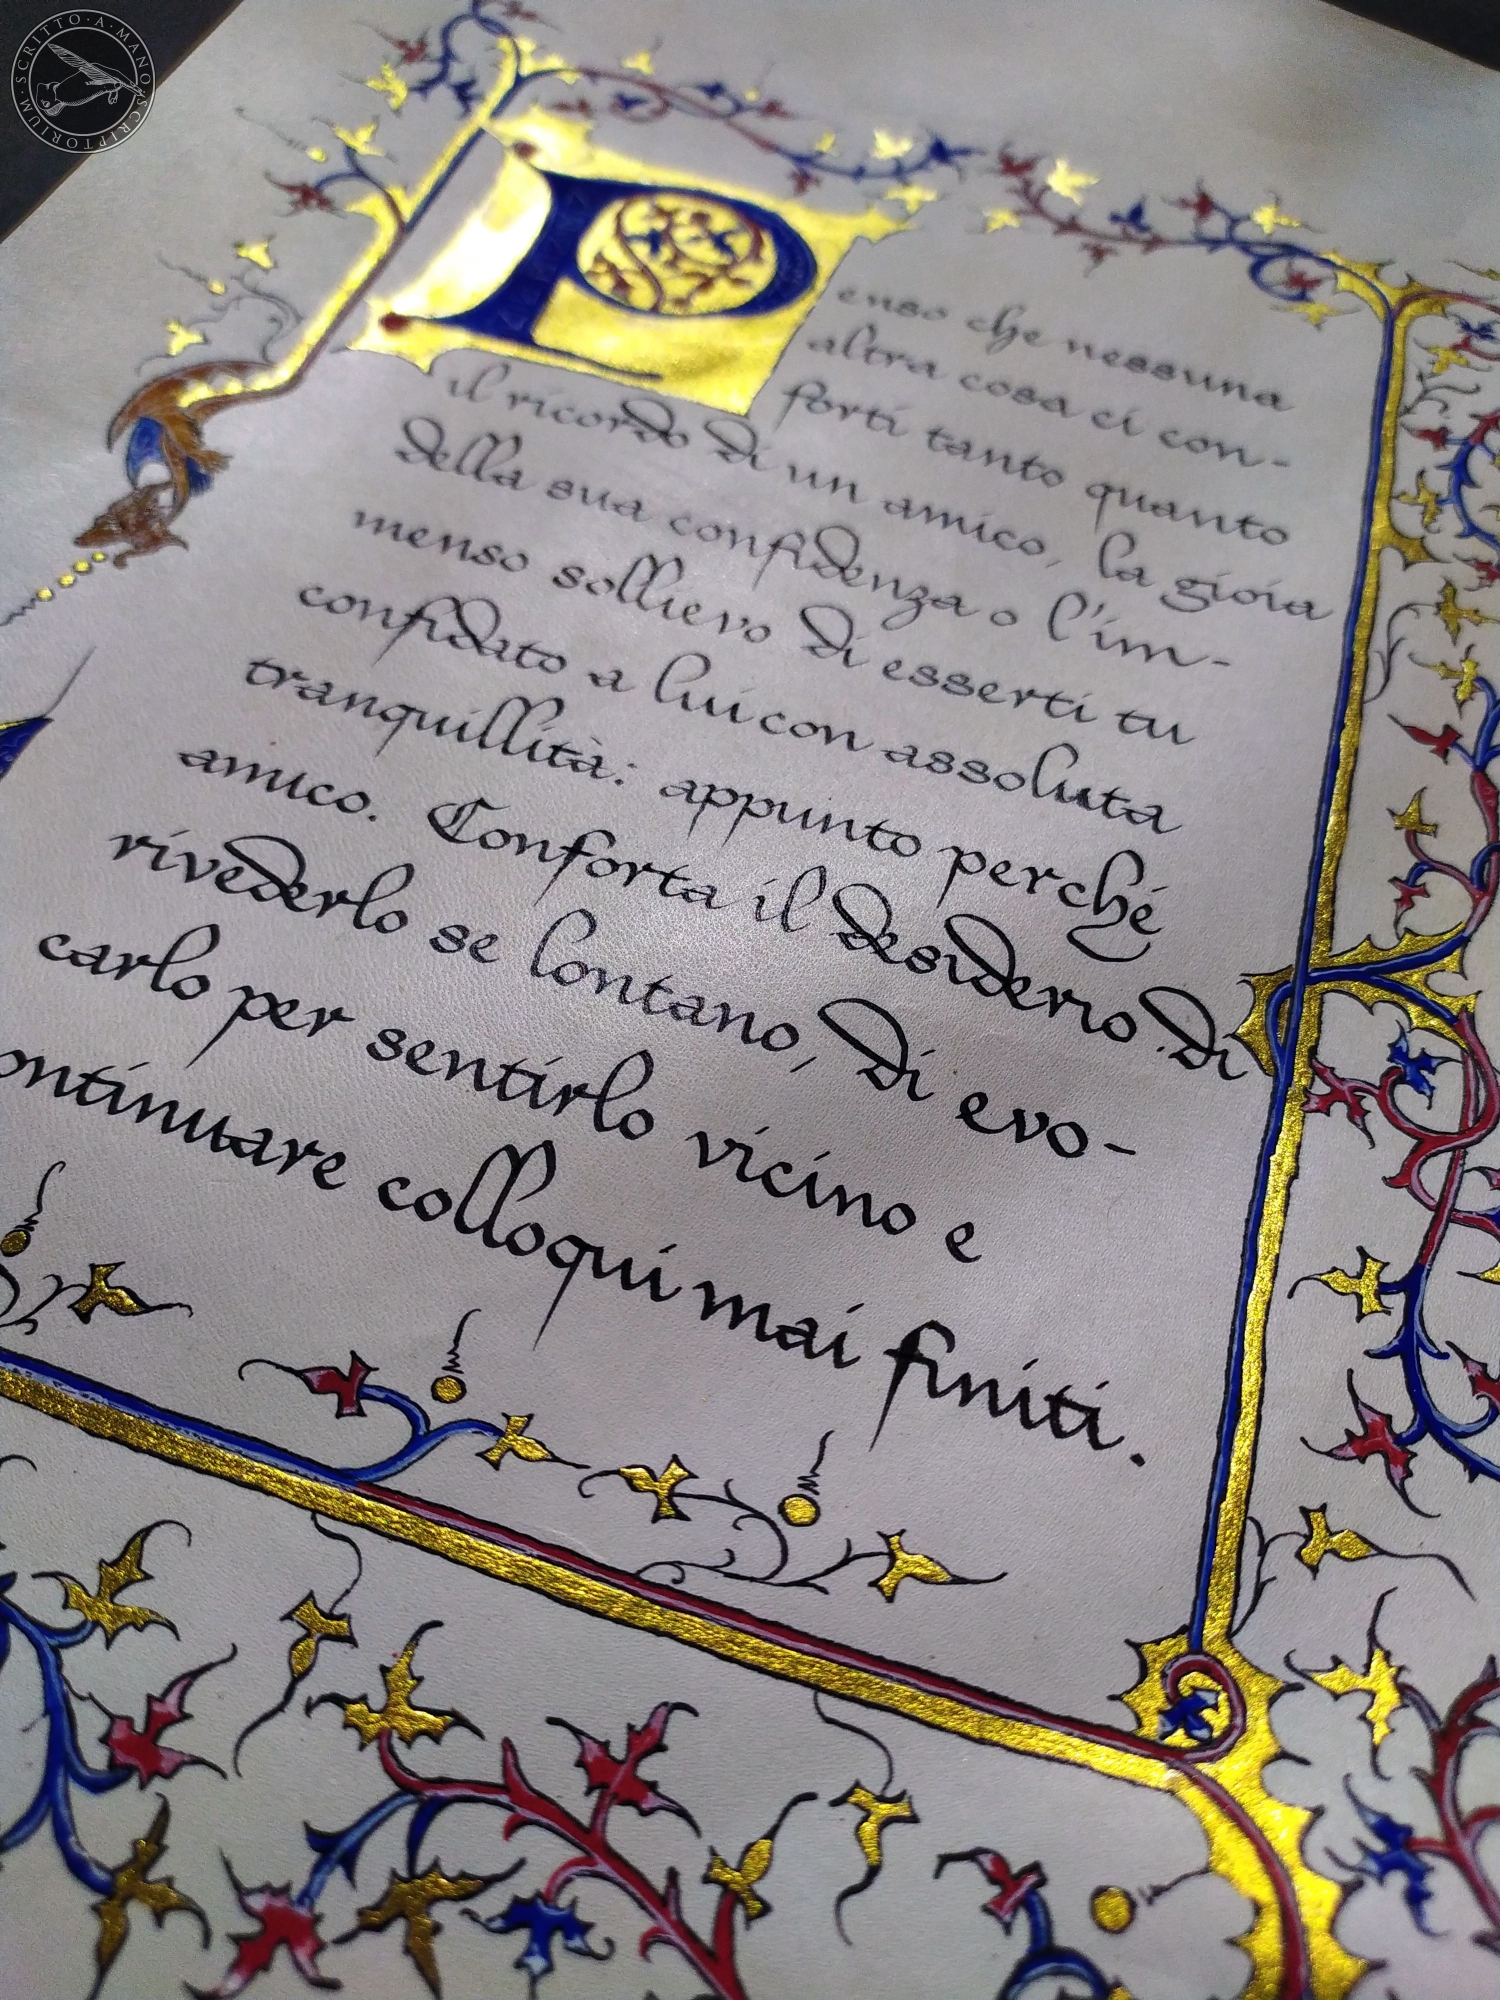 SCRITTO · A · MANO · SCRIPTORIUM
Penso che nessuna
altra cosa ci con-
forti tanto quanto
il ricordo di un amico, la gioia
della sua confidenza o l'im-
menso sollievo di esserti tu
confidato a lui con assoluta
tranquillità: appunto perché
amico. Conforta il desiderio di
rivederlo se lontano, di evo-
carlo per sentirlo vicino e
ontinuare colloqui mai finiti.